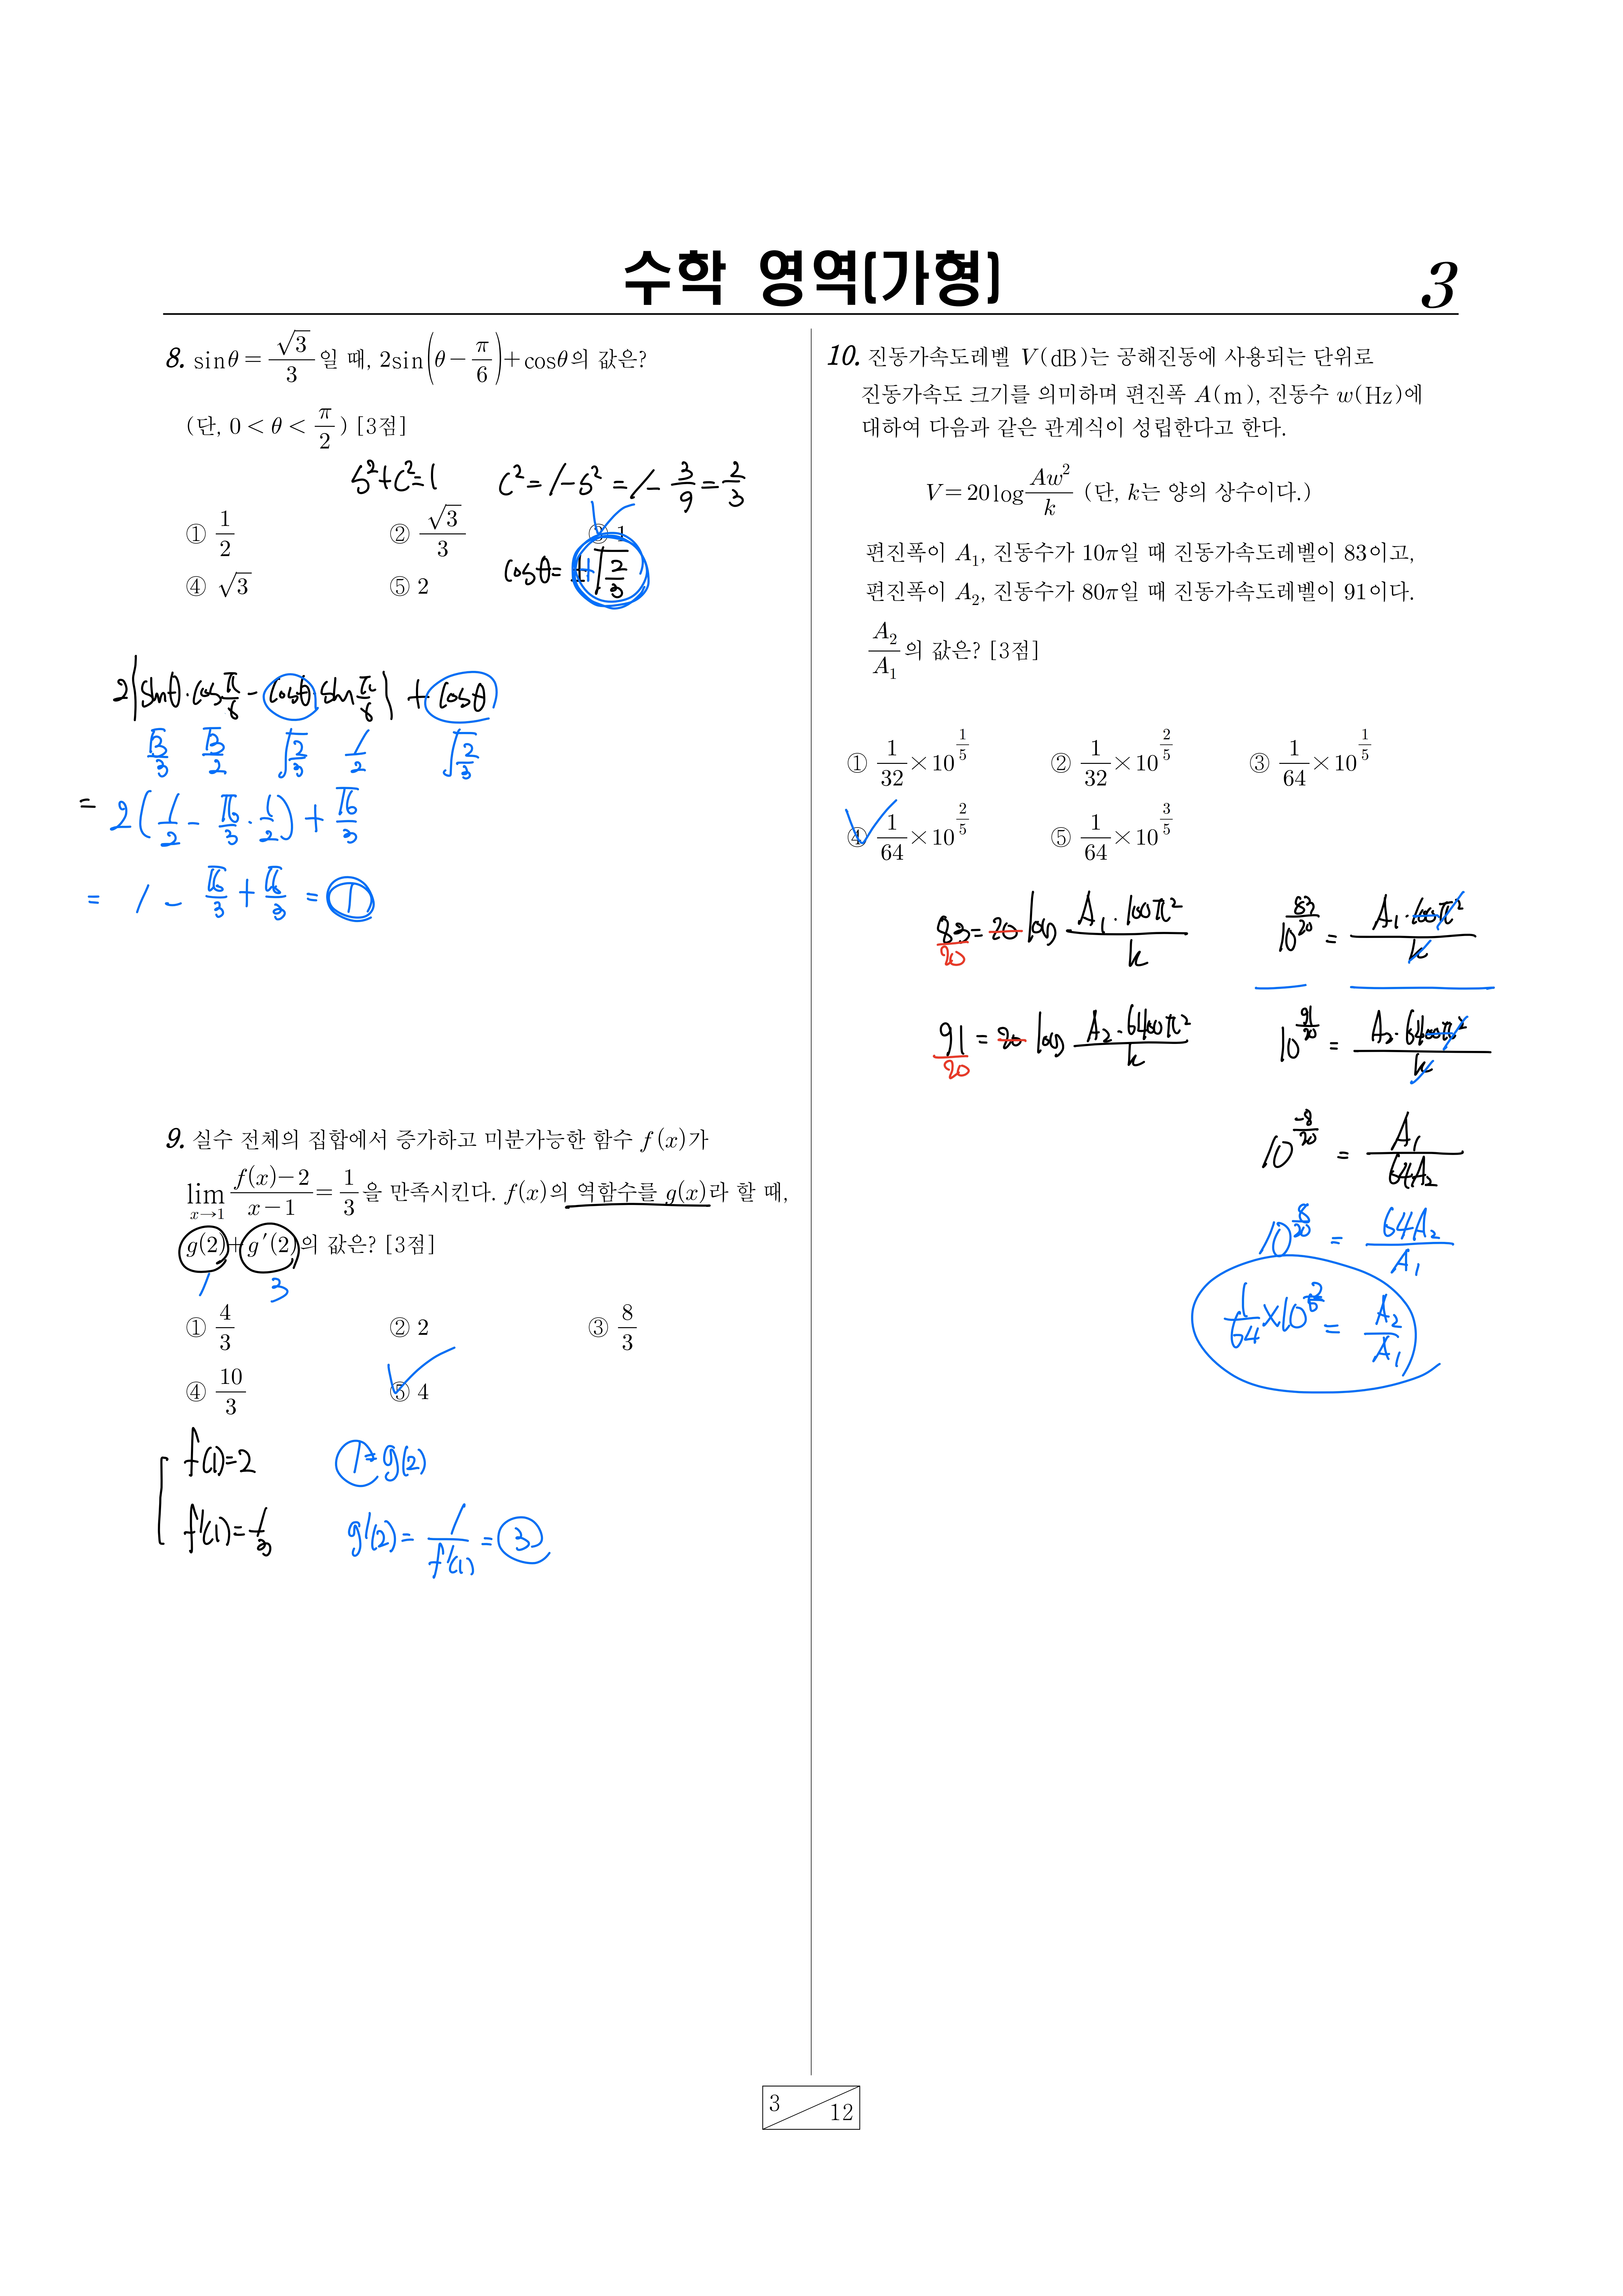 수학 영역(가형)
3
8. sinθ = √3/3 일 때, 2sin(θ − π/6) + cosθ의 값은?
(단, 0 < θ < π/2) [3점]
s²+c²=1   c²=1−s²=1−3/9=2/3
① 1/2   ② √3/3   ③ 1
④ √3   ⑤ 2
cosθ=+√(2/3)
2(sinθ·cos π/6 − cosθ sin π/6) + cosθ
√3/3   √3/2   √(2/3)   1/2   √(2/3)
= 2(1/2 − √6/3·1/2) + √6/3
= 1 − √6/3 + √6/3 = 1
9. 실수 전체의 집합에서 증가하고 미분가능한 함수 f(x)가
lim x→1 (f(x)−2)/(x−1) = 1/3 을 만족시킨다. f(x)의 역함수를 g(x)라 할 때,
g(2)+g′(2)의 값은? [3점]
1   3
① 4/3   ② 2   ③ 8/3
④ 10/3   ⑤ 4
f(1)=2   1=g(2)
f′(1)=1/3   g′(2)=1/f′(1)=3
10. 진동가속도레벨 V(dB)는 공해진동에 사용되는 단위로
진동가속도 크기를 의미하며 편진폭 A(m), 진동수 w(Hz)에
대하여 다음과 같은 관계식이 성립한다고 한다.
V=20log Aw²/k (단, k는 양의 상수이다.)
편진폭이 A₁, 진동수가 10π일 때 진동가속도레벨이 83이고,
편진폭이 A₂, 진동수가 80π일 때 진동가속도레벨이 91이다.
A₂/A₁의 값은? [3점]
① 1/32×10^(1/5)   ② 1/32×10^(2/5)   ③ 1/64×10^(1/5)
④ 1/64×10^(2/5)   ⑤ 1/64×10^(3/5)
83/20 = 20 log A₁·100π²/k   10^(83/20) = A₁·100π²/k
91/20 = 20 log A₂·6400π²/k   10^(91/20) = A₂·6400π²/k
10^(−8/20) = A₁/64A₂
10^(8/20) = 64A₂/A₁
1/64×10^(2/5) = A₂/A₁
3/12